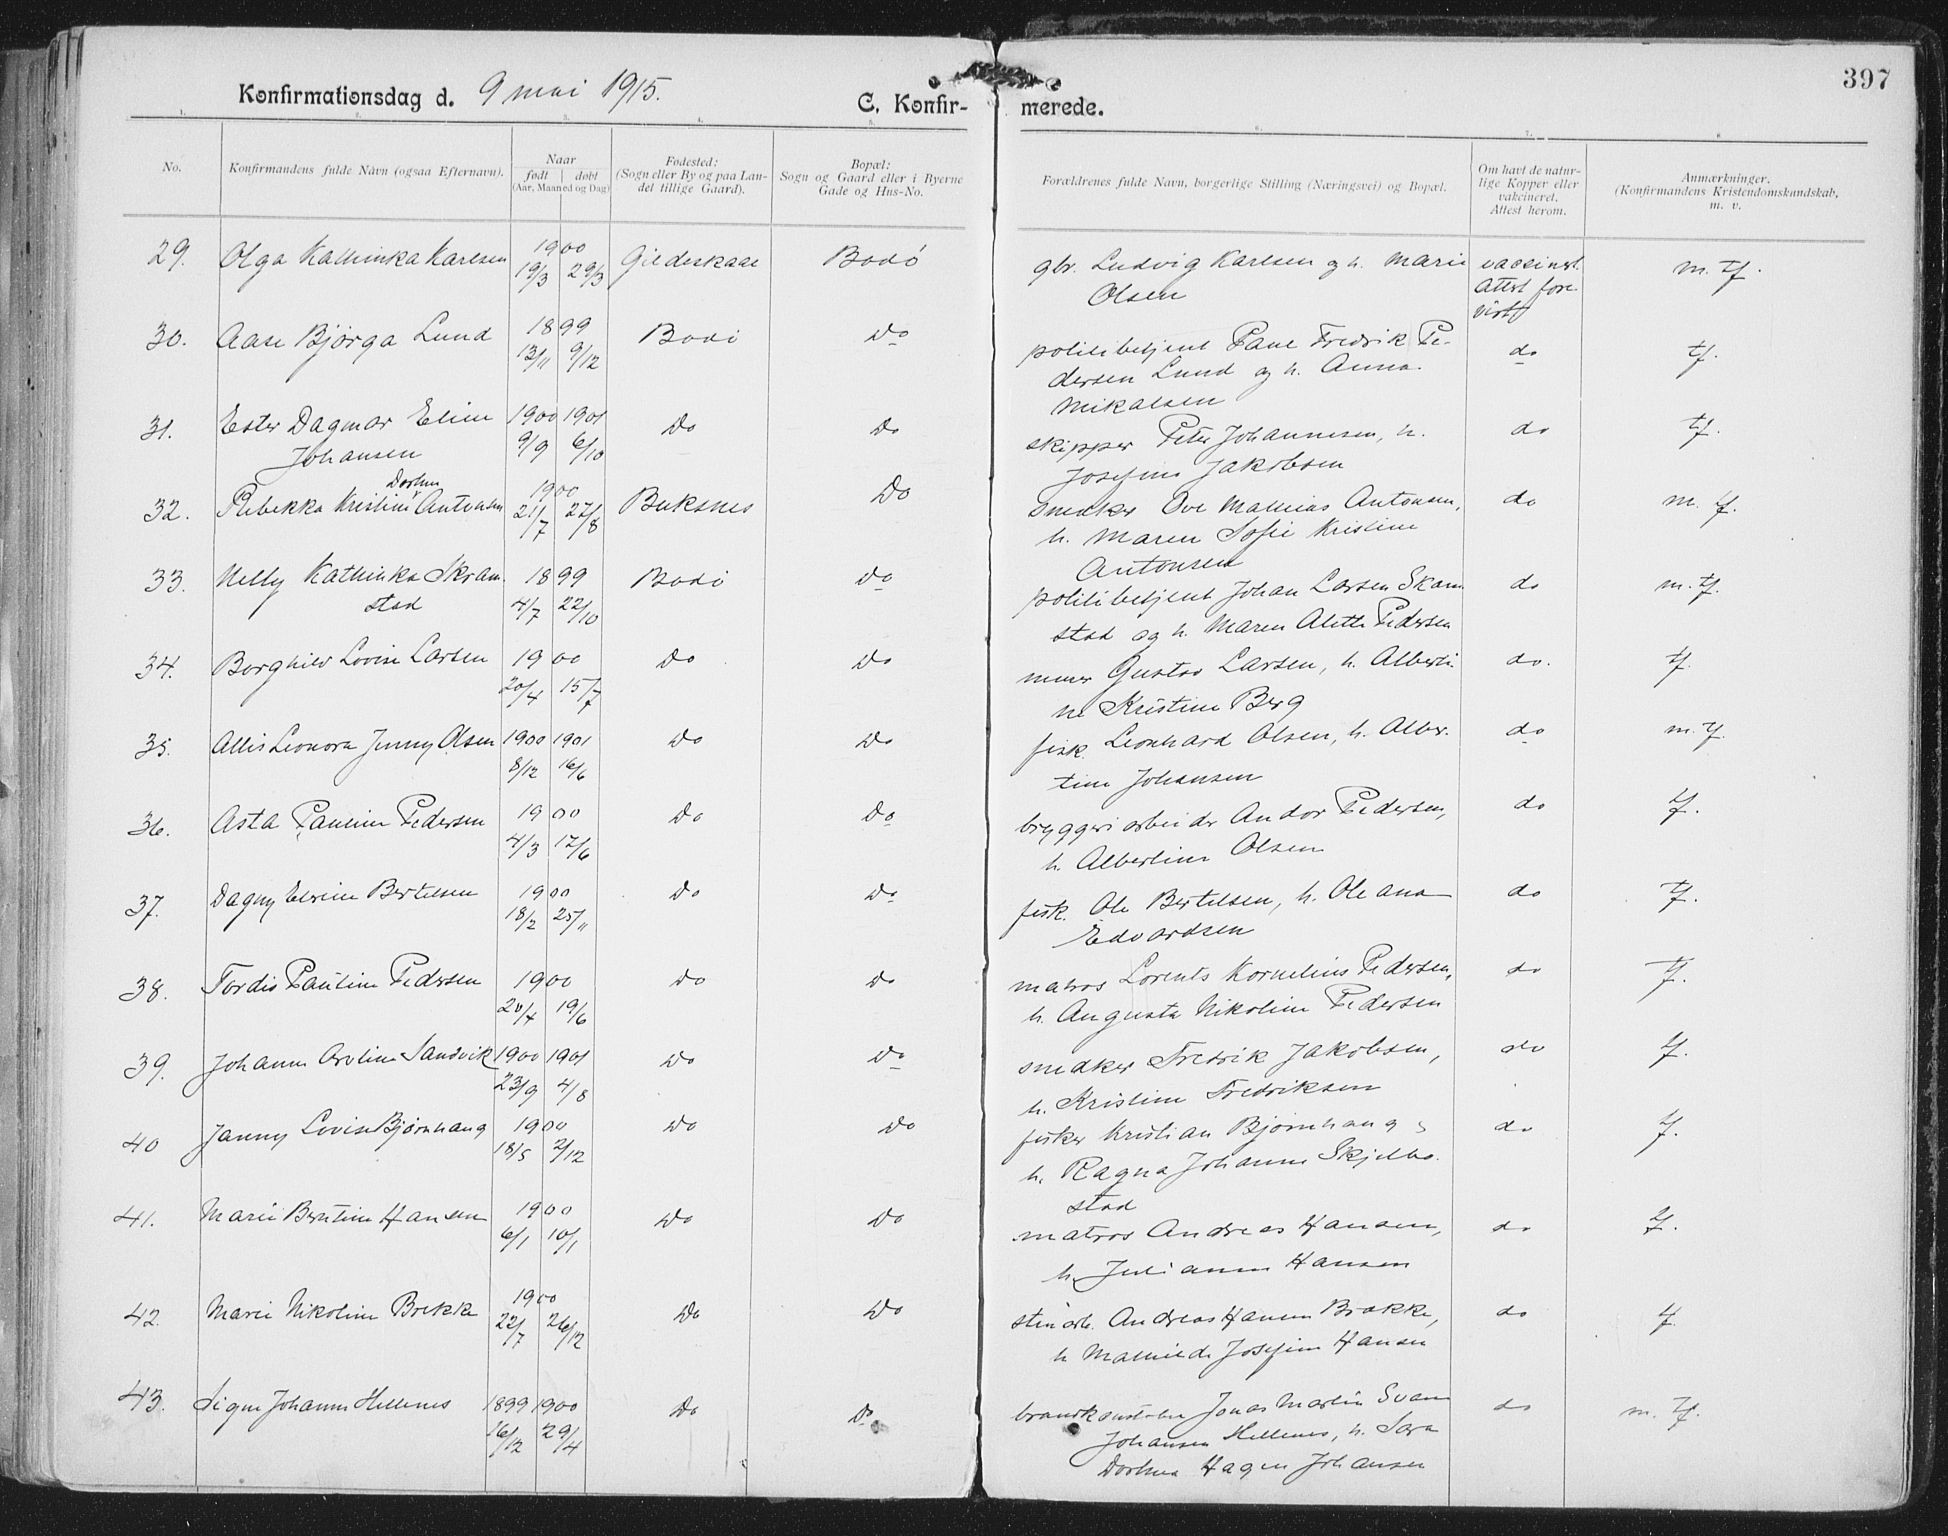 397
Konfirmationsdag d. 9 mai 1915.
C. Konfir- merede.
1. 2. 3. 4. 5. 6. 7. 8.
No.
Konfirmandens fulde Navn (ogsaa Efternavn).
Naar
født døbt
(Aar, Maaned og Dag)
Fødested:
(Sogn eller By og paa Lan-
det tillige Gaard).
Bopæl:
Sogn og Gaard eller i Byerne
Gade og Hus-No.
Forældrenes fulde Navn, borgerlige Stilling (Næringsvei) og Bopæl.
Om havt de natur-
lige Kopper eller
vakcineret.
Attest herom.
Anmærkninger.
(Konfirmandens Kristendomskundskab,
m. v.
29. Olga Kathinka Karlsen 1900 19/3 29/3 Gildeskaal Bodø gbr. Ludvig Karlsen og h. Marie vaccinert. m. tf.
Olsen attest fore-
vist
30. Aase Bjørga Lund 1899 13/11 9/12 Bodø Do politibetjent Paul Fredrik Pe- do tf.
dersen Lund og h. Anna
Mikalsen
31. Ester Dagmar Eline 1900 1901 Do Do skipper Peter Johannesen, h. do tf.
Johansen 9/9 6/10 Josefine Jakobsen
32. Rebekka Kristine Dorthea Antonsen 1900 21/7 27/8 Buksnes Do snedker Ove Mathias Antonsen, do m. tf.
h. Maren Sofie Kristine
Antonsen
33. Nelly Kathinka Skram- 1899 Bodø do politibetjent Johan Larsen Skam- do m. tf.
stad 4/7 22/10 stad og h. Maren Alette Pedersen
34. Borghild Lovise Larsen 1900 Do Do murer Gustav Larsen, h. Alberti- do. tf.
20/4 15/7 ne Kristine Berg
35. Allis Leonora Jenny Olsen 1900 1901 Do Do fisk. Leonhard Olsen, h. Alber- do m. tf.
8/12 16/6 tine Johansen
36. Asta Pauline Pedersen 1900 Do Do bryggeriarbeider Andor Pedersen, do tf.
4/3 17/6 h. Albertine Olsen
37. Dagny Elvine Bertelsen 1900 Do Do fisk. Ole Bertelsen, h. Oleana do tf.
18/2 25/11 Edvardsen
38. Tordis Pauline Pedersen 1900 Do Do matros Lorents Kornelius Pedersen, do tf.
20/4 19/6 h. Augusta Nikoline Pedersen
39. Johanne Ovoline Sandvik 1900 1901 Do Do snedker Fredrik Jakobsen, do tf.
23/9 4/8 h. Kristine Fredriksen
40 Janny Lovise Bjørnhaug 1900 Do Do fisker Kristian Bjørnhaug, do tf.
18/5 2/12 h. Ragna Johanne Skjelbo-
stad
41. Marie Berntine Hansen 1900 Do Do matros Andreas Hansen, do tf.
6/1 10/1 h. Julianne Hansen
42. Marie Nikoline Brekke 1900 Do Do stenarb. Andreas Hansen Brække, do tf.
22/7 26/12 h Mathilde Josefine Hansen
43. Signe Johanne Hellenes 1899 1900 Do Do brandkonstabel Jonas Martin Svan do m. tf.
16/12 29/4 Johansen Hellenes, h. Sara
Dorthea Hagen Johansen